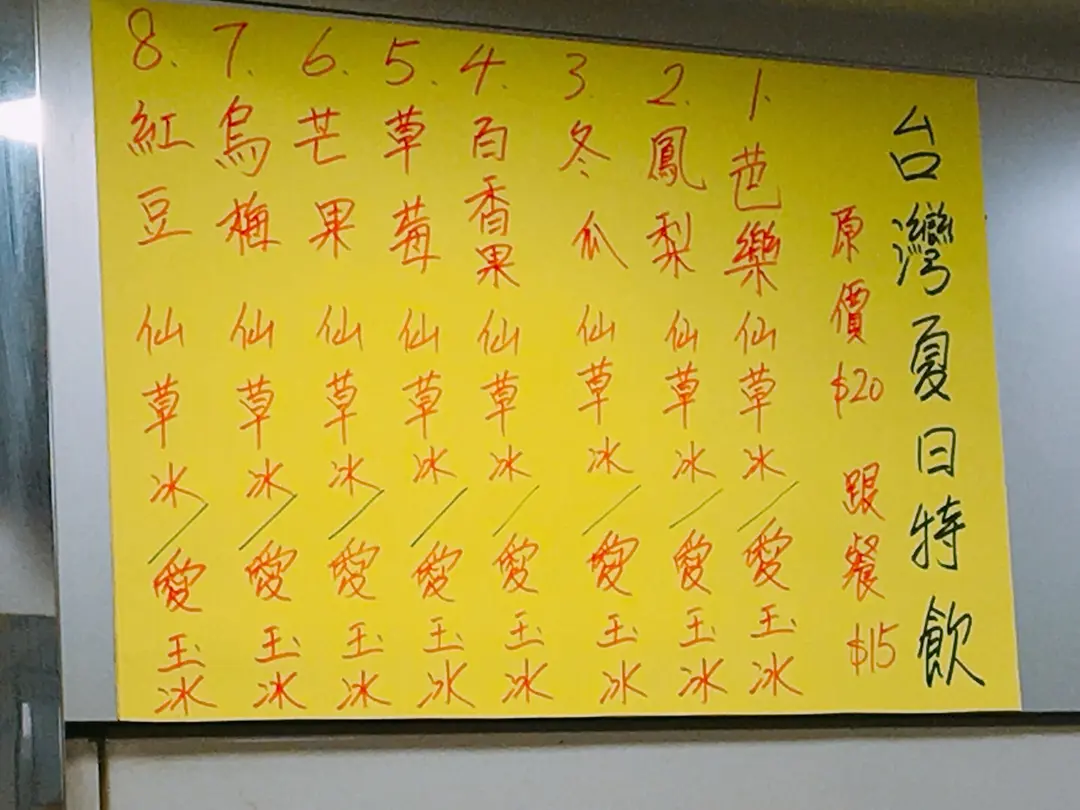 台灣夏日特飲
原價$20 跟餐$15
1. 芭樂仙草冰/愛玉冰
2. 鳳梨仙草冰/愛玉冰
3. 冬瓜仙草冰/愛玉冰
4. 百香果仙草冰/愛玉冰
5. 草莓仙草冰/愛玉冰
6. 芒果仙草冰/愛玉冰
7. 烏梅仙草冰/愛玉冰
8. 紅豆仙草冰/愛玉冰